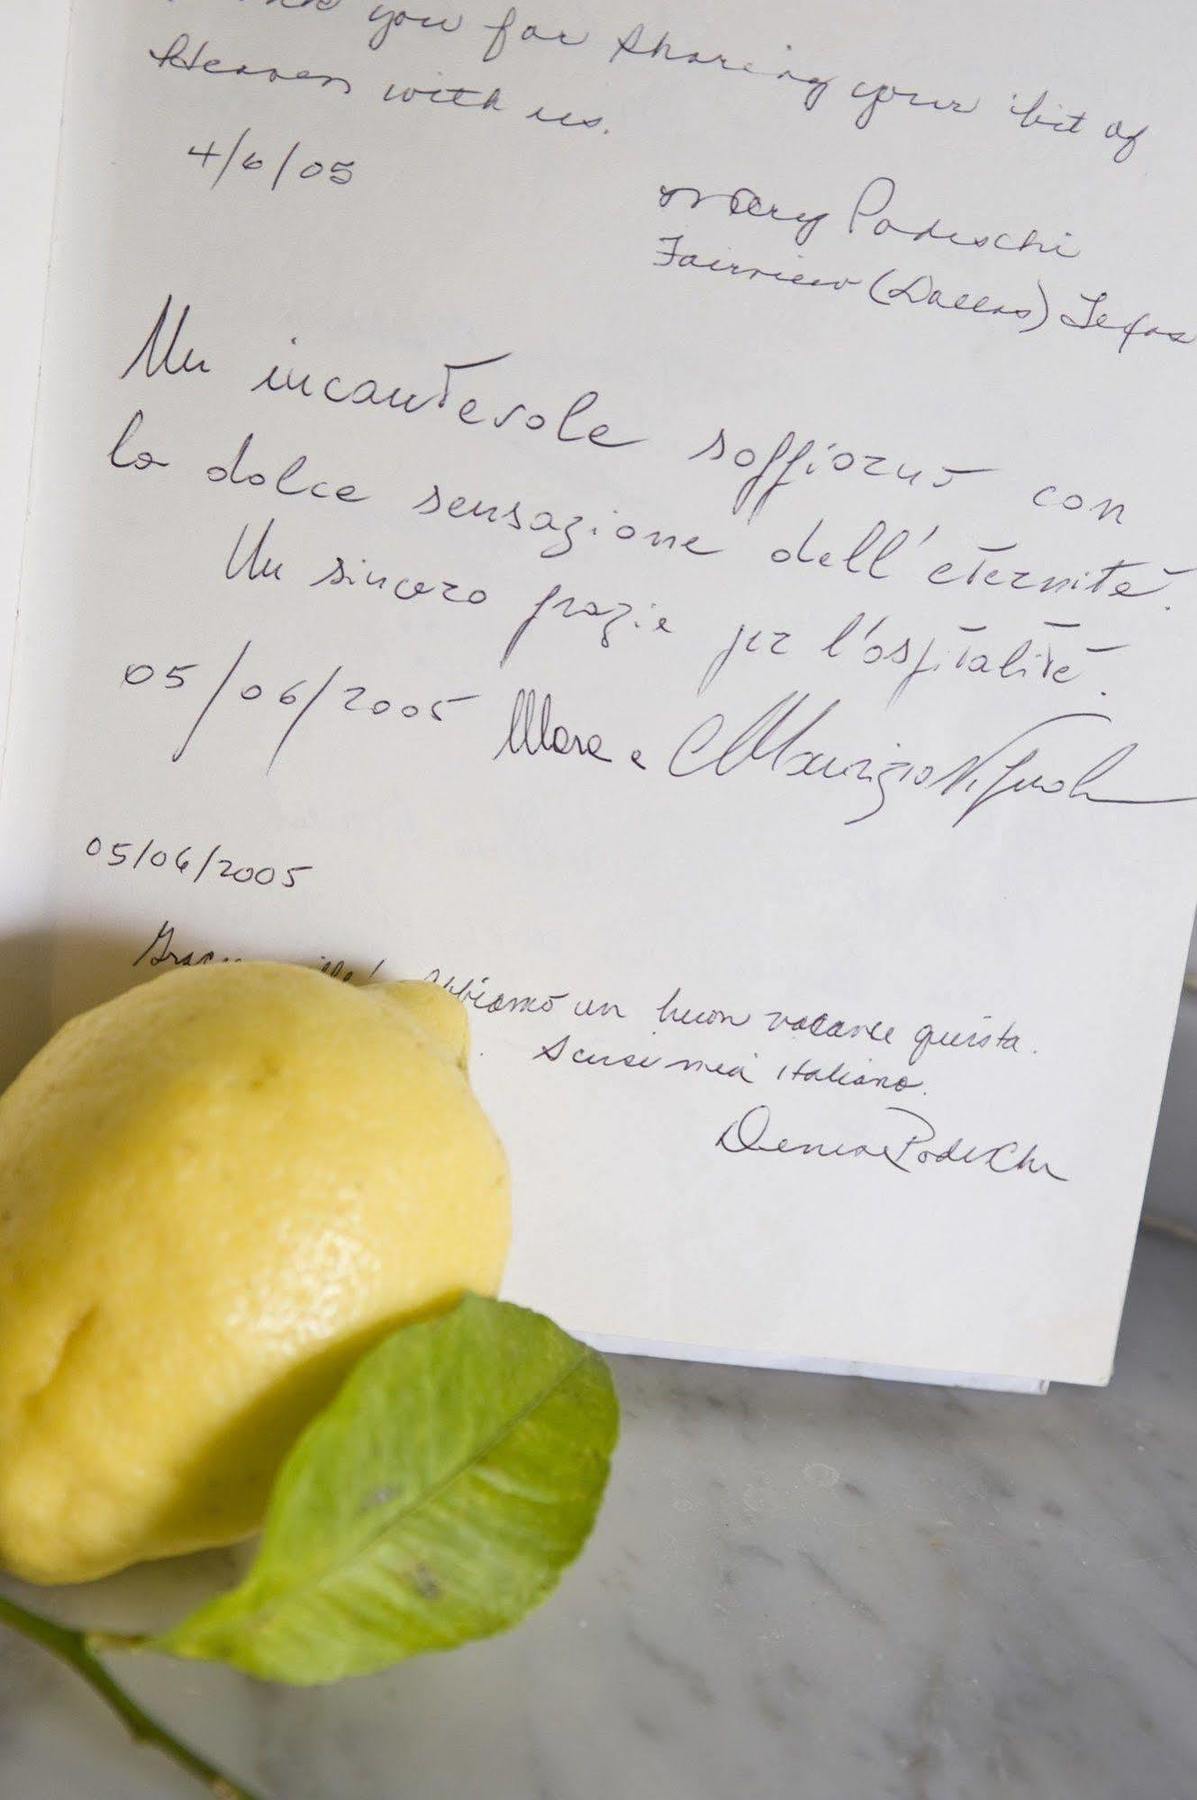 you for sharing your bit of
Heaven with us.
4/6/05
Mary Podeschi
Fairview (Dallas) Texas
Un incantevole soggiorno con
la dolce sensazione dell'eternità.
Un sincero grazie per l'ospitalità.
05/06/2005 Mara e Maurizio
05/06/2005
abbiamo un buon vacance questa.
Scusi mia italiano.
Podeschi